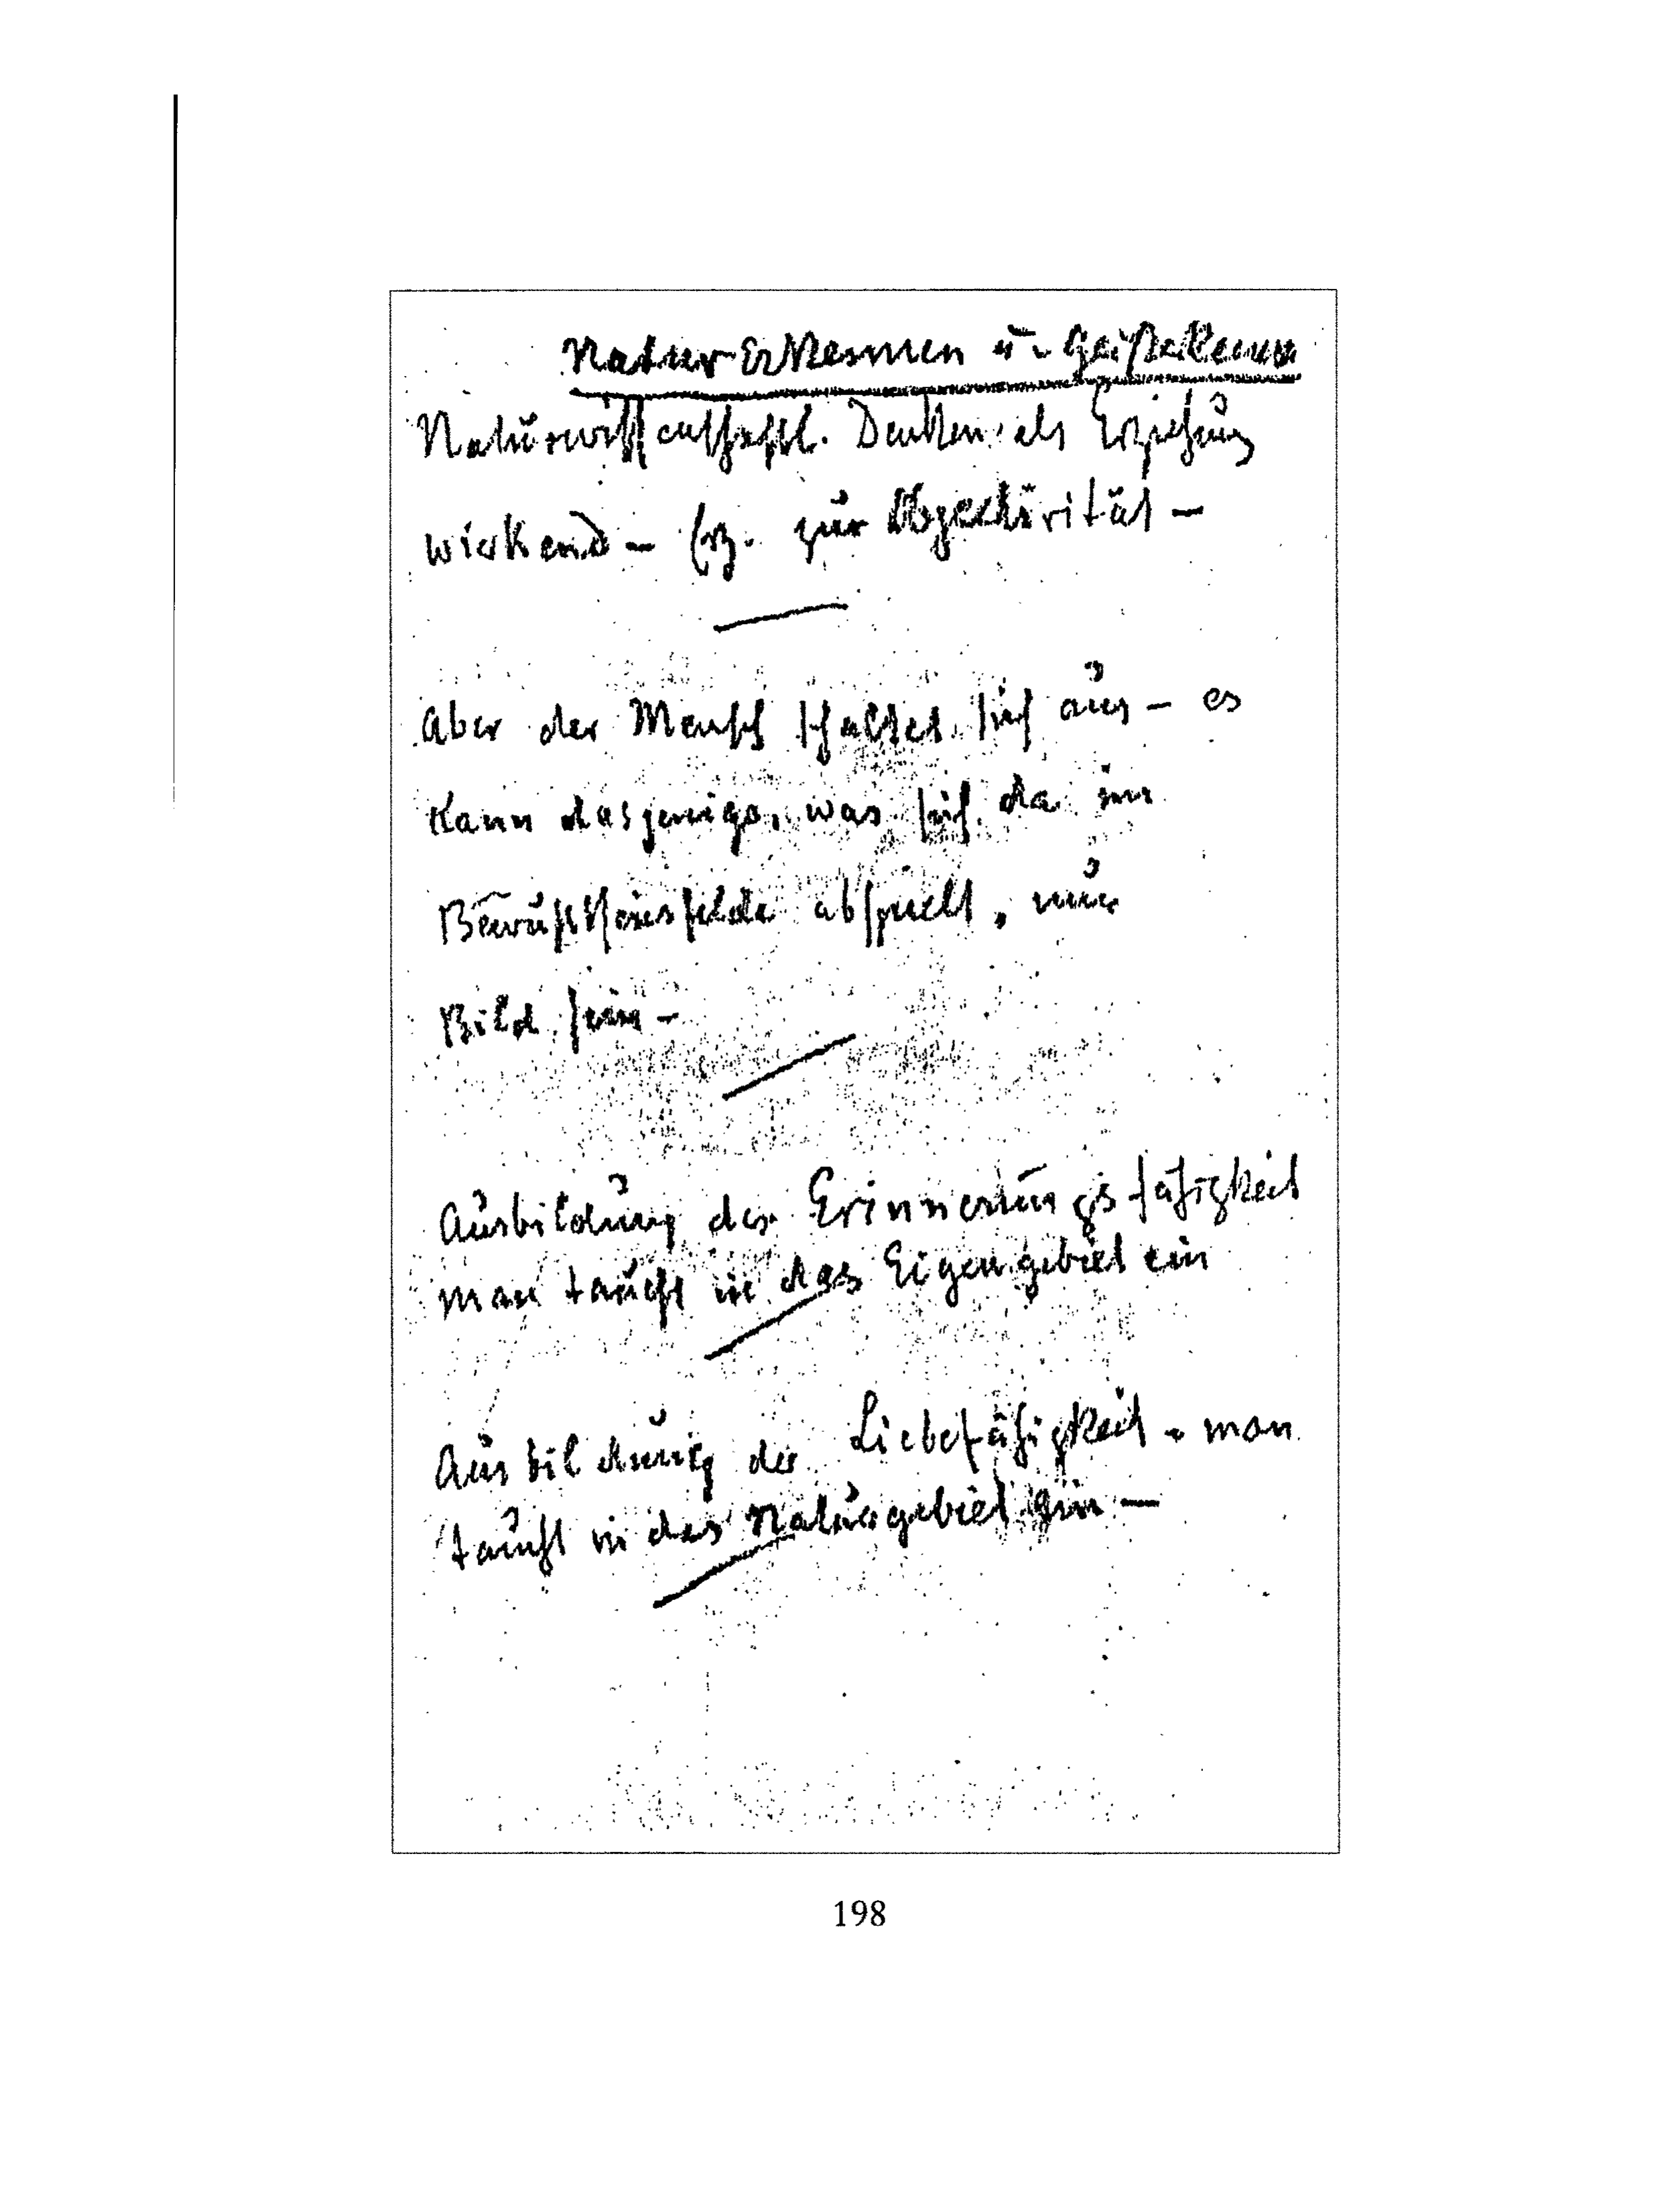 Natur-Erkennen u. Geisterkennen
Naturwissenschaftl. Denken als Erziehung
wirkend – Erz. zur Objectivität –
Aber der Mensch schaltet sich aus – es
kann dasjenige, was sich da im
Bewußtseinsfelde abspielt, nur
Bild sein –
Ausbildung der Erinnerungsfähigkeit
man taucht in das Eigengebiet ein
Ausbildung der Liebefähigkeit – man
taucht in das Naturgebiet ein –
198